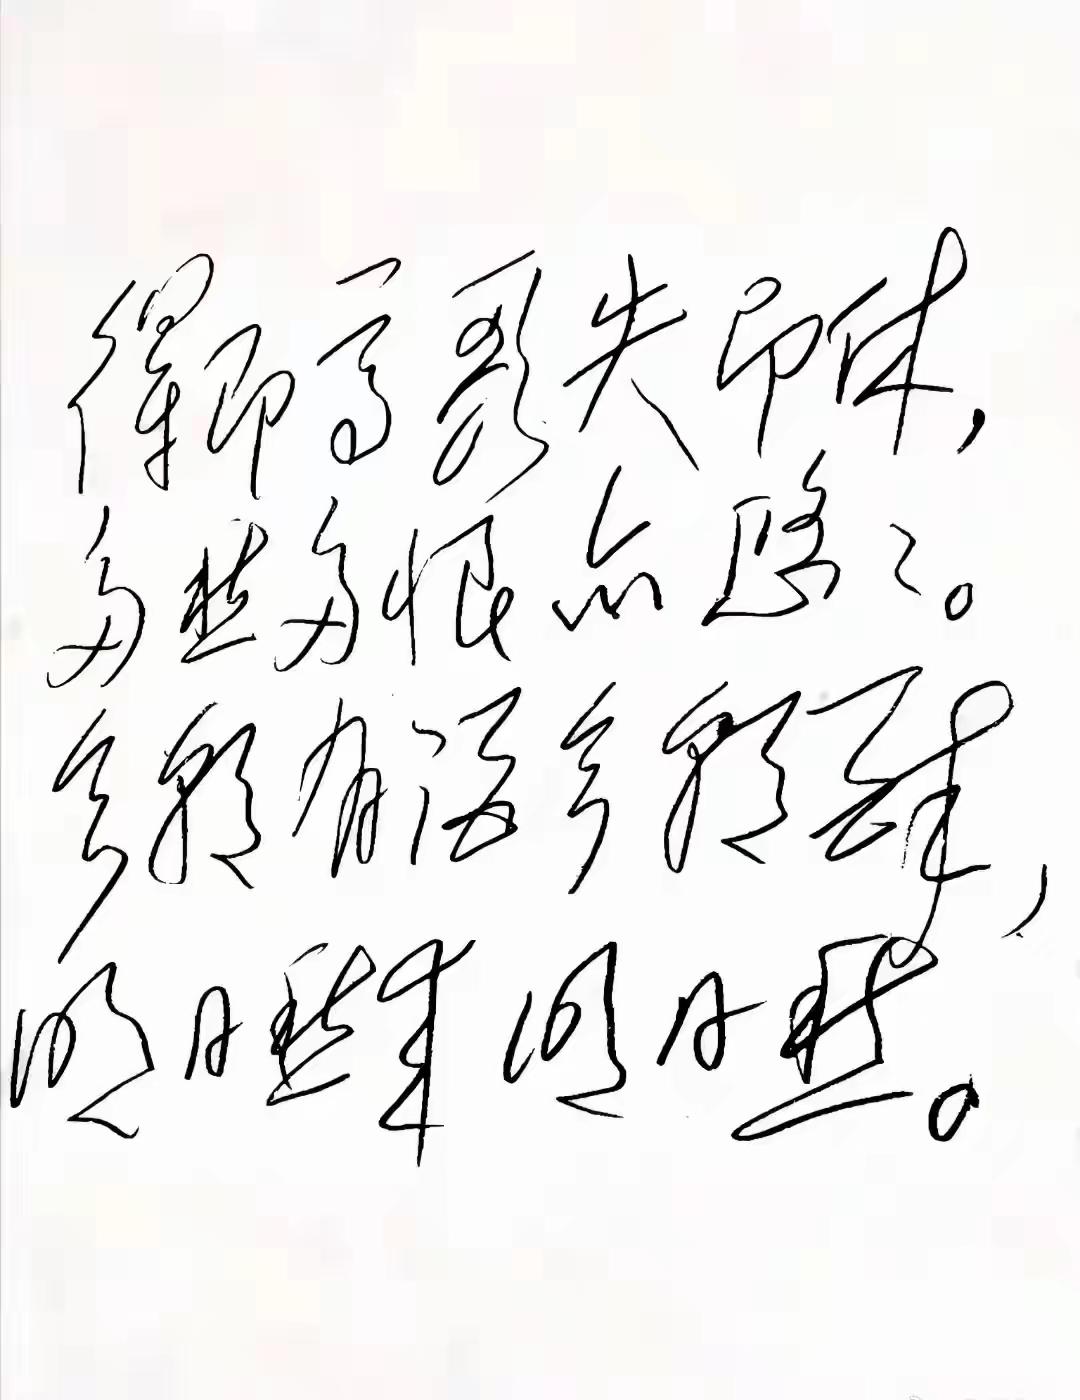 得即高歌失即休，
多愁多恨亦悠々。
今朝有酒今朝醉，
明日愁来明日愁。